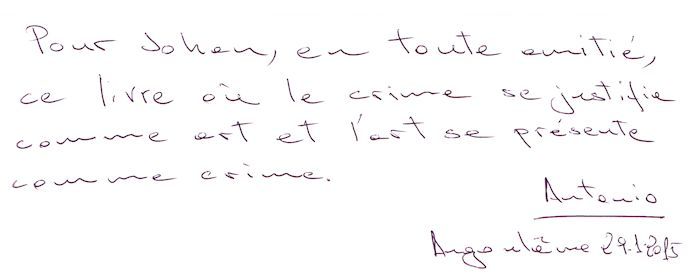 Pour Johan, en toute amitié,
ce livre où le crime se justifie
comme art et l'art se présente
comme crime.
Antonio
Angoulême 29.1.2015